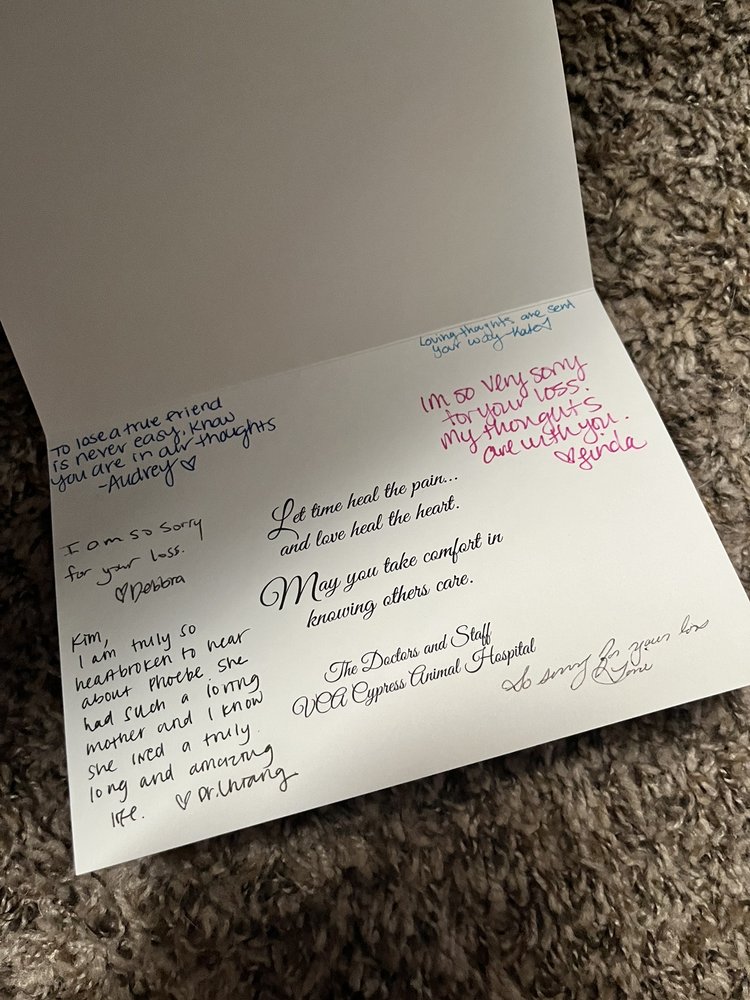 Loving thoughts are sent
your way - Kate
To lose a true friend
is never easy, know
you are in all thoughts
-Audrey ♡
Im so very sorry
for your loss.
my thoughts
are with you.
♡ Linda
I am so sorry
for your loss.
♡ Debbra
Let time heal the pain...
and love heal the heart.
May you take comfort in
knowing others care.
The Doctors and Staff
VCA Cypress Animal Hospital
Kim,
I am truly so
heartbroken to hear
about Phoebe. She
had such a loving
mother and I know
she lived a truly
long and amazing
life. ♡ Dr. Chiang
So sorry for your loss